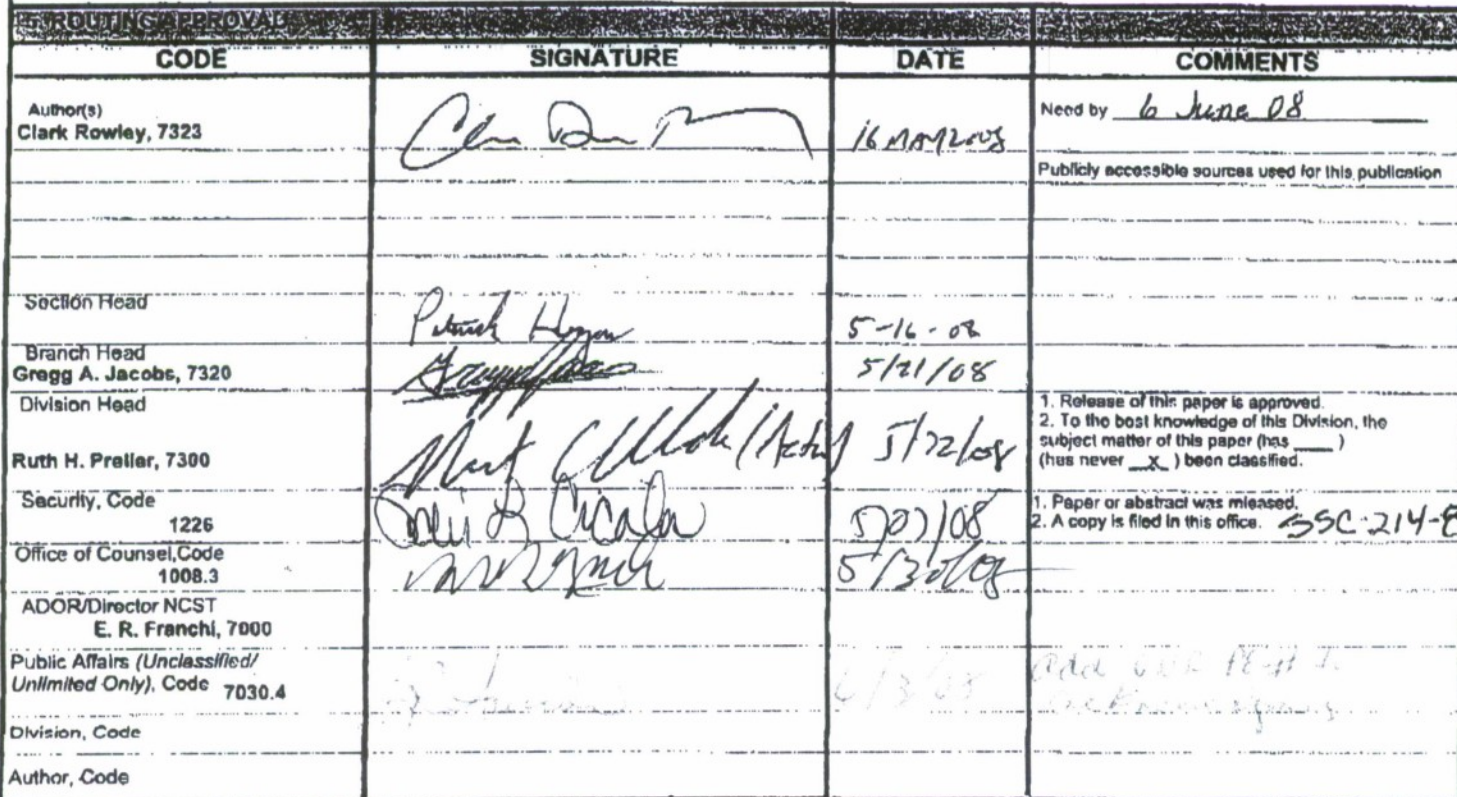 5. ROUTING/APPROVAL
CODE SIGNATURE DATE COMMENTS
Author(s)
Clark Rowley, 7323
16 MAY 2008
Need by 6 June 08
Publicly accessible sources used for this publication
Section Head
Patrick Hogan
5-16-08
Branch Head
Gregg A. Jacobs, 7320
5/21/08
Division Head
Ruth H. Preller, 7300
(Acting) 5/22/08
1. Release of this paper is approved.
2. To the best knowledge of this Division, the
subject matter of this paper (has ____ )
(has never __x_ ) been classified.
Security, Code
1226
1. Paper or abstract was released.
2. A copy is filed in this office. SSC-214-8
Office of Counsel,Code
1008.3
5/30/08
ADOR/Director NCST
E. R. Franchi, 7000
Public Affairs (Unclassified/
Unlimited Only), Code 7030.4
6/3/08
Division, Code
Author, Code